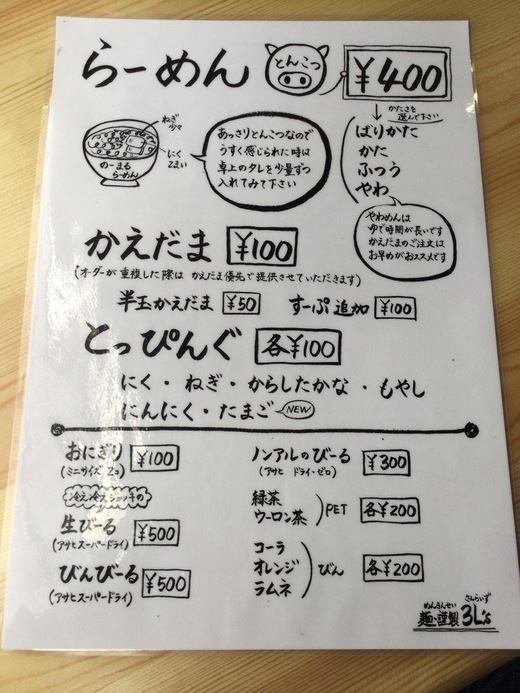 らーめん
とんこつ
¥400
かたさを
選んで下さい
ばりかた
かた
ふつう
やわ
ねぎ
少々
にく
2まい
のーまる
らーめん
あっさりとんこつなので
うすく感じられた時は
卓上のタレを少量ずつ
入れてみて下さい
やわめんは
ゆで時間が長いです
かえだまのご注文は
お早めがおススメです
かえだま ¥100
(オーダーが重複した際は かえだま優先で提供させていただきます)
半玉かえだま ¥50 すーぷ追加 ¥100
とっぴんぐ 各¥100
にく・ねぎ・からしたかな・もやし
にんにく・たまご NEW
おにぎり ¥100
(ミニサイズ 2コ)
冷え冷えジョッキの
生びーる ¥500
(アサヒスーパードライ)
びんびーる ¥500
(アサヒスーパードライ)
ノンアルのびーる ¥300
(アサヒ ドライ・ゼロ)
緑茶
ウーロン茶
PET 各¥200
コーラ
オレンジ
ラムネ
びん 各¥200
めんきんせい さんらいず
麺・謹製 3L's